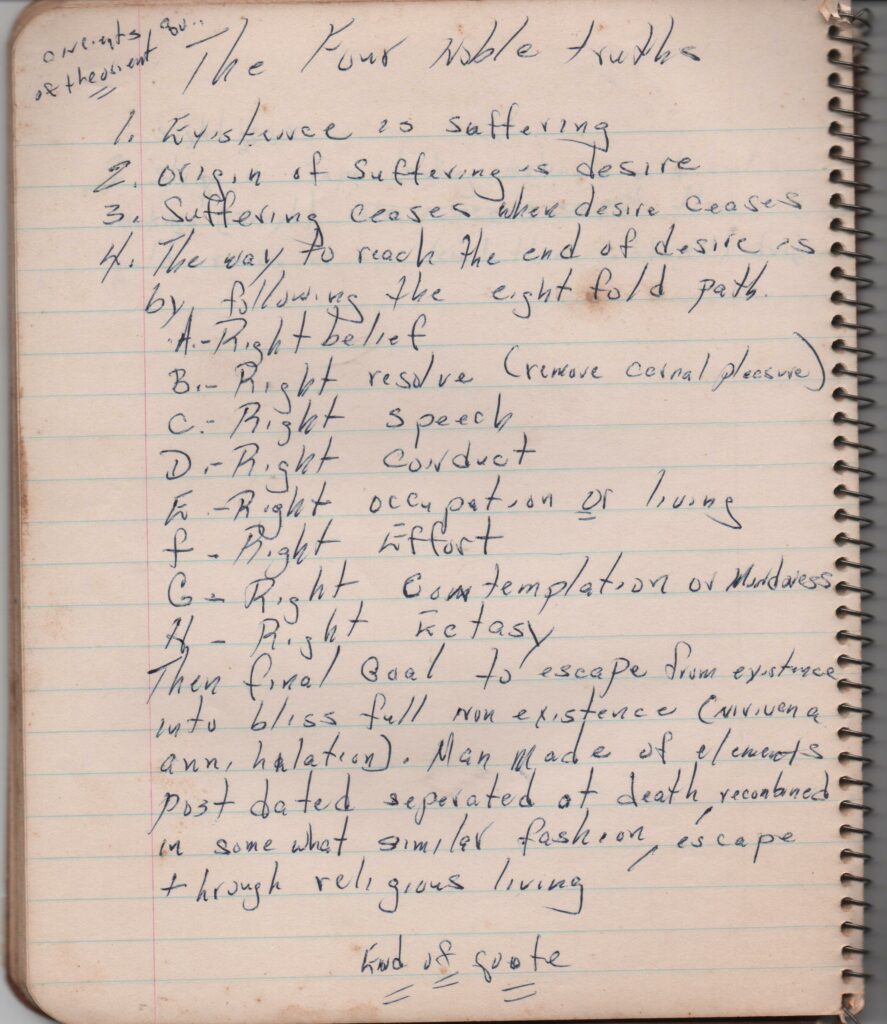 ancients qu..
of the orient
The Four Noble truths
1. Existence is suffering
2. Origin of suffering is desire
3. Suffering ceases when desire ceases
4. The way to reach the end of desire is
by following the eight fold path.
A.-Right belief
B.- Right resolve (remove carnal pleasure)
C.- Right speech
D.- Right conduct
E.-Right occupation or living
f - Right Effort
G - Right Contemplation or
H - Right Ectasy
Then final Goal to escape from existence
into bliss full non existence (
annihalation). Man made of elements
post dated seperated at death, recombined
in some what similar fashion, escape
through religious living
End of quote